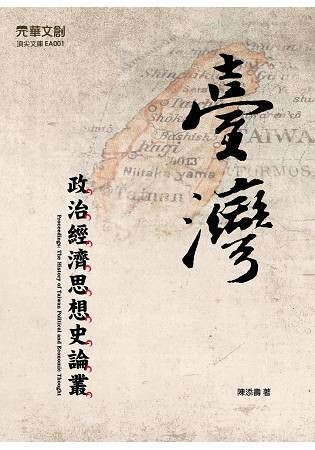 元華文創
頂尖文庫 EA001
臺灣
政治經濟思想史論叢
Proceedings: The History of Taiwan Political and Economic Thought
陳添壽 著
Bashisk
Shoka
Kagi
Niitaka yama
TAIWAN
FORMOS